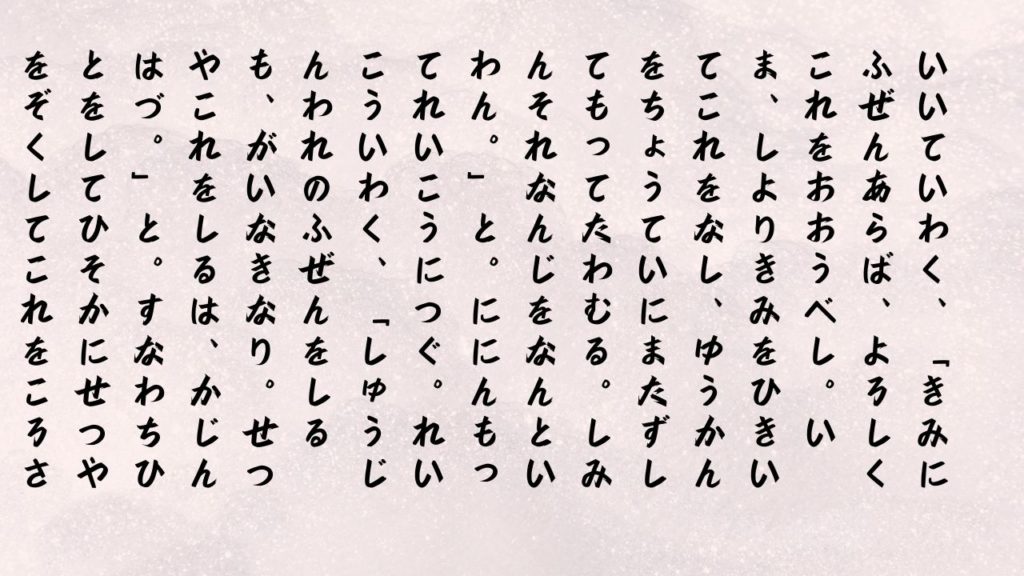 いいていわく、「きみに
ふぜんあらば、よろしく
これをおおうべし。い
ま、しよりきみをひきい
てこれをなし、ゆうかん
をちょうていにまたずし
てもってたわむる。しみ
んそれなんじをなんとい
わん。」と。ににんもっ
てれいこうにつぐ。れい
こういわく、「しゅうじ
んわれのふぜんをしる
も、がいなきなり。せつ
やこれをしるは、かじん
はづ。」と。すなわちひ
とをしてひそかにせつや
をぞくしてこれをころさ